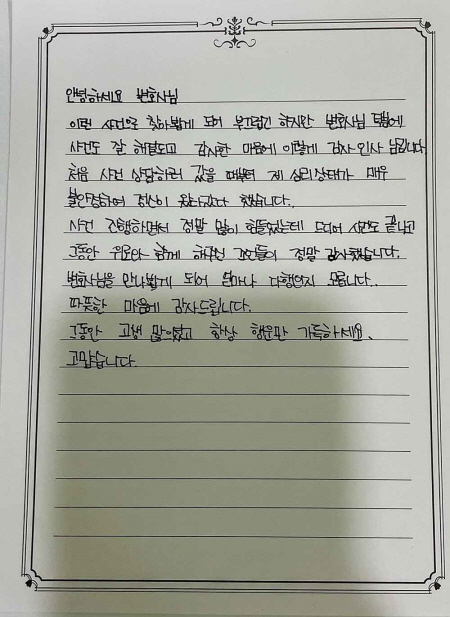 안녕하세요 변호사님
이런 사건으로 찾아뵙게 되어 부끄럽긴 하지만 변호사님 덕분에
사건도 잘 해결되고 감사한 마음에 이렇게 감사 인사 남깁니다.
처음 사건 상담하러 갔을 때부터 제 심리상태가 매우
불안정하여 정신이 왔다갔다 했습니다.
사건 진행하면서 정말 많이 힘들었는데 드디어 사건도 끝나고
그동안 위로와 함께 해주신 조언들이 정말 감사했습니다.
변호사님을 만나뵙게 되어 얼마나 다행인지 모릅니다..
따뜻한 마음에 감사드립니다.
그동안 고생 많으셨고 항상 행운만 가득하세요.
고맙습니다.